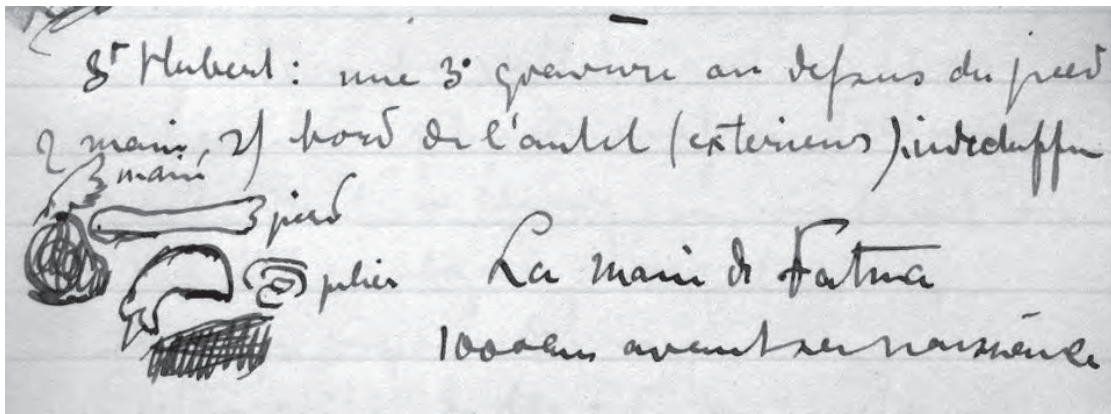 St Hubert : une 3e gravure au dessus du pied
2 main, 2) bord de l'autel (exterieurs).
main
pied
pilier
La main de Fatma
1000 ans avant sa naissance